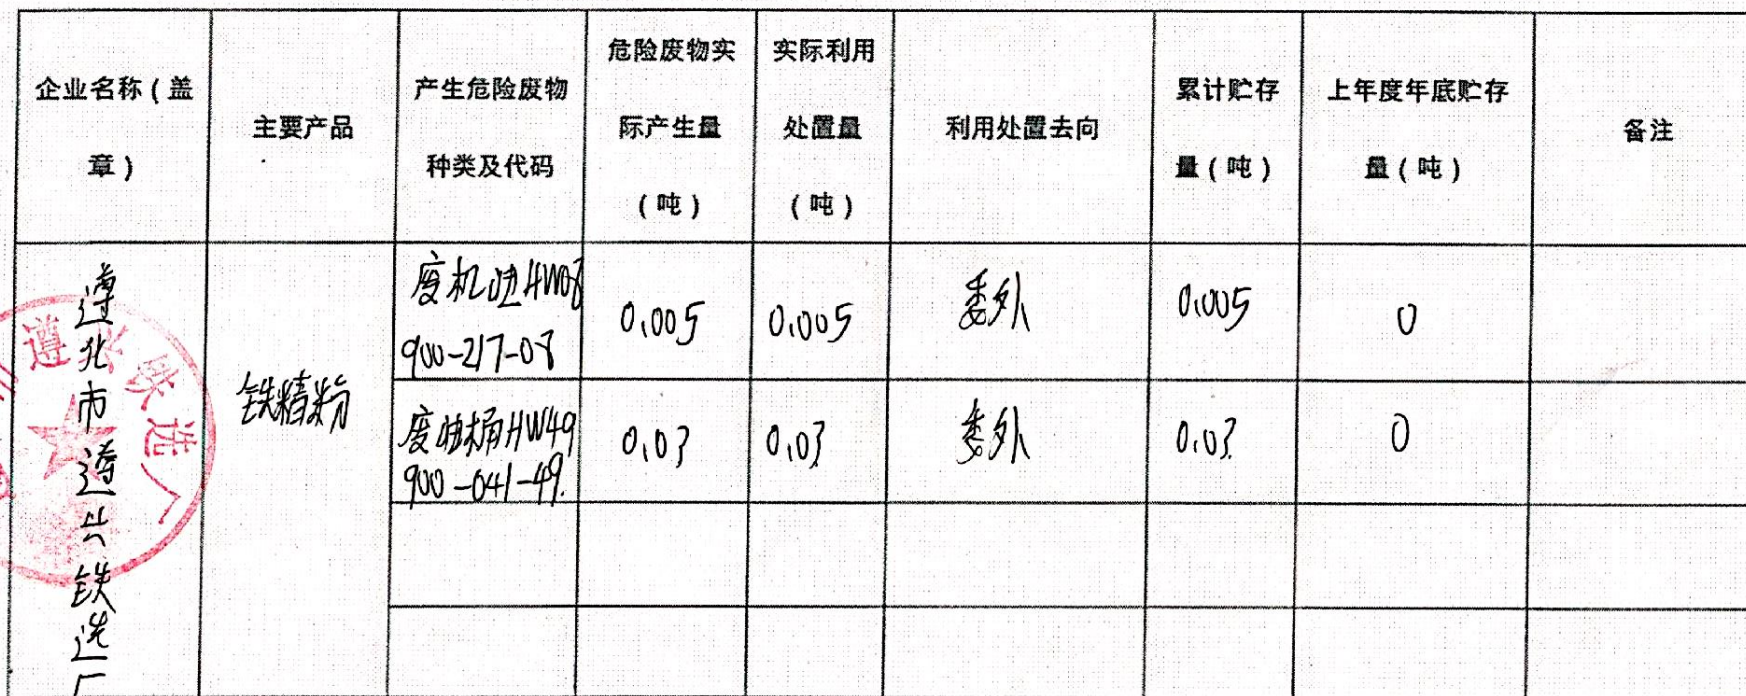 企业名称（盖
章）
主要产品
产生危险废物
种类及代码
危险废物实
际产生量
（吨）
实际利用
处置量
（吨）
利用处置去向
累计贮存
量（吨）
上年度年底贮存
量（吨）
备注
遵化市遵兴铁选厂
铁精粉
废机油HW08
900-217-08
0.005
0.005
委外
0.005
0
废油桶HW49
900-041-49.
0.03
0.03
委外
0.03
0
遵兴铁选厂